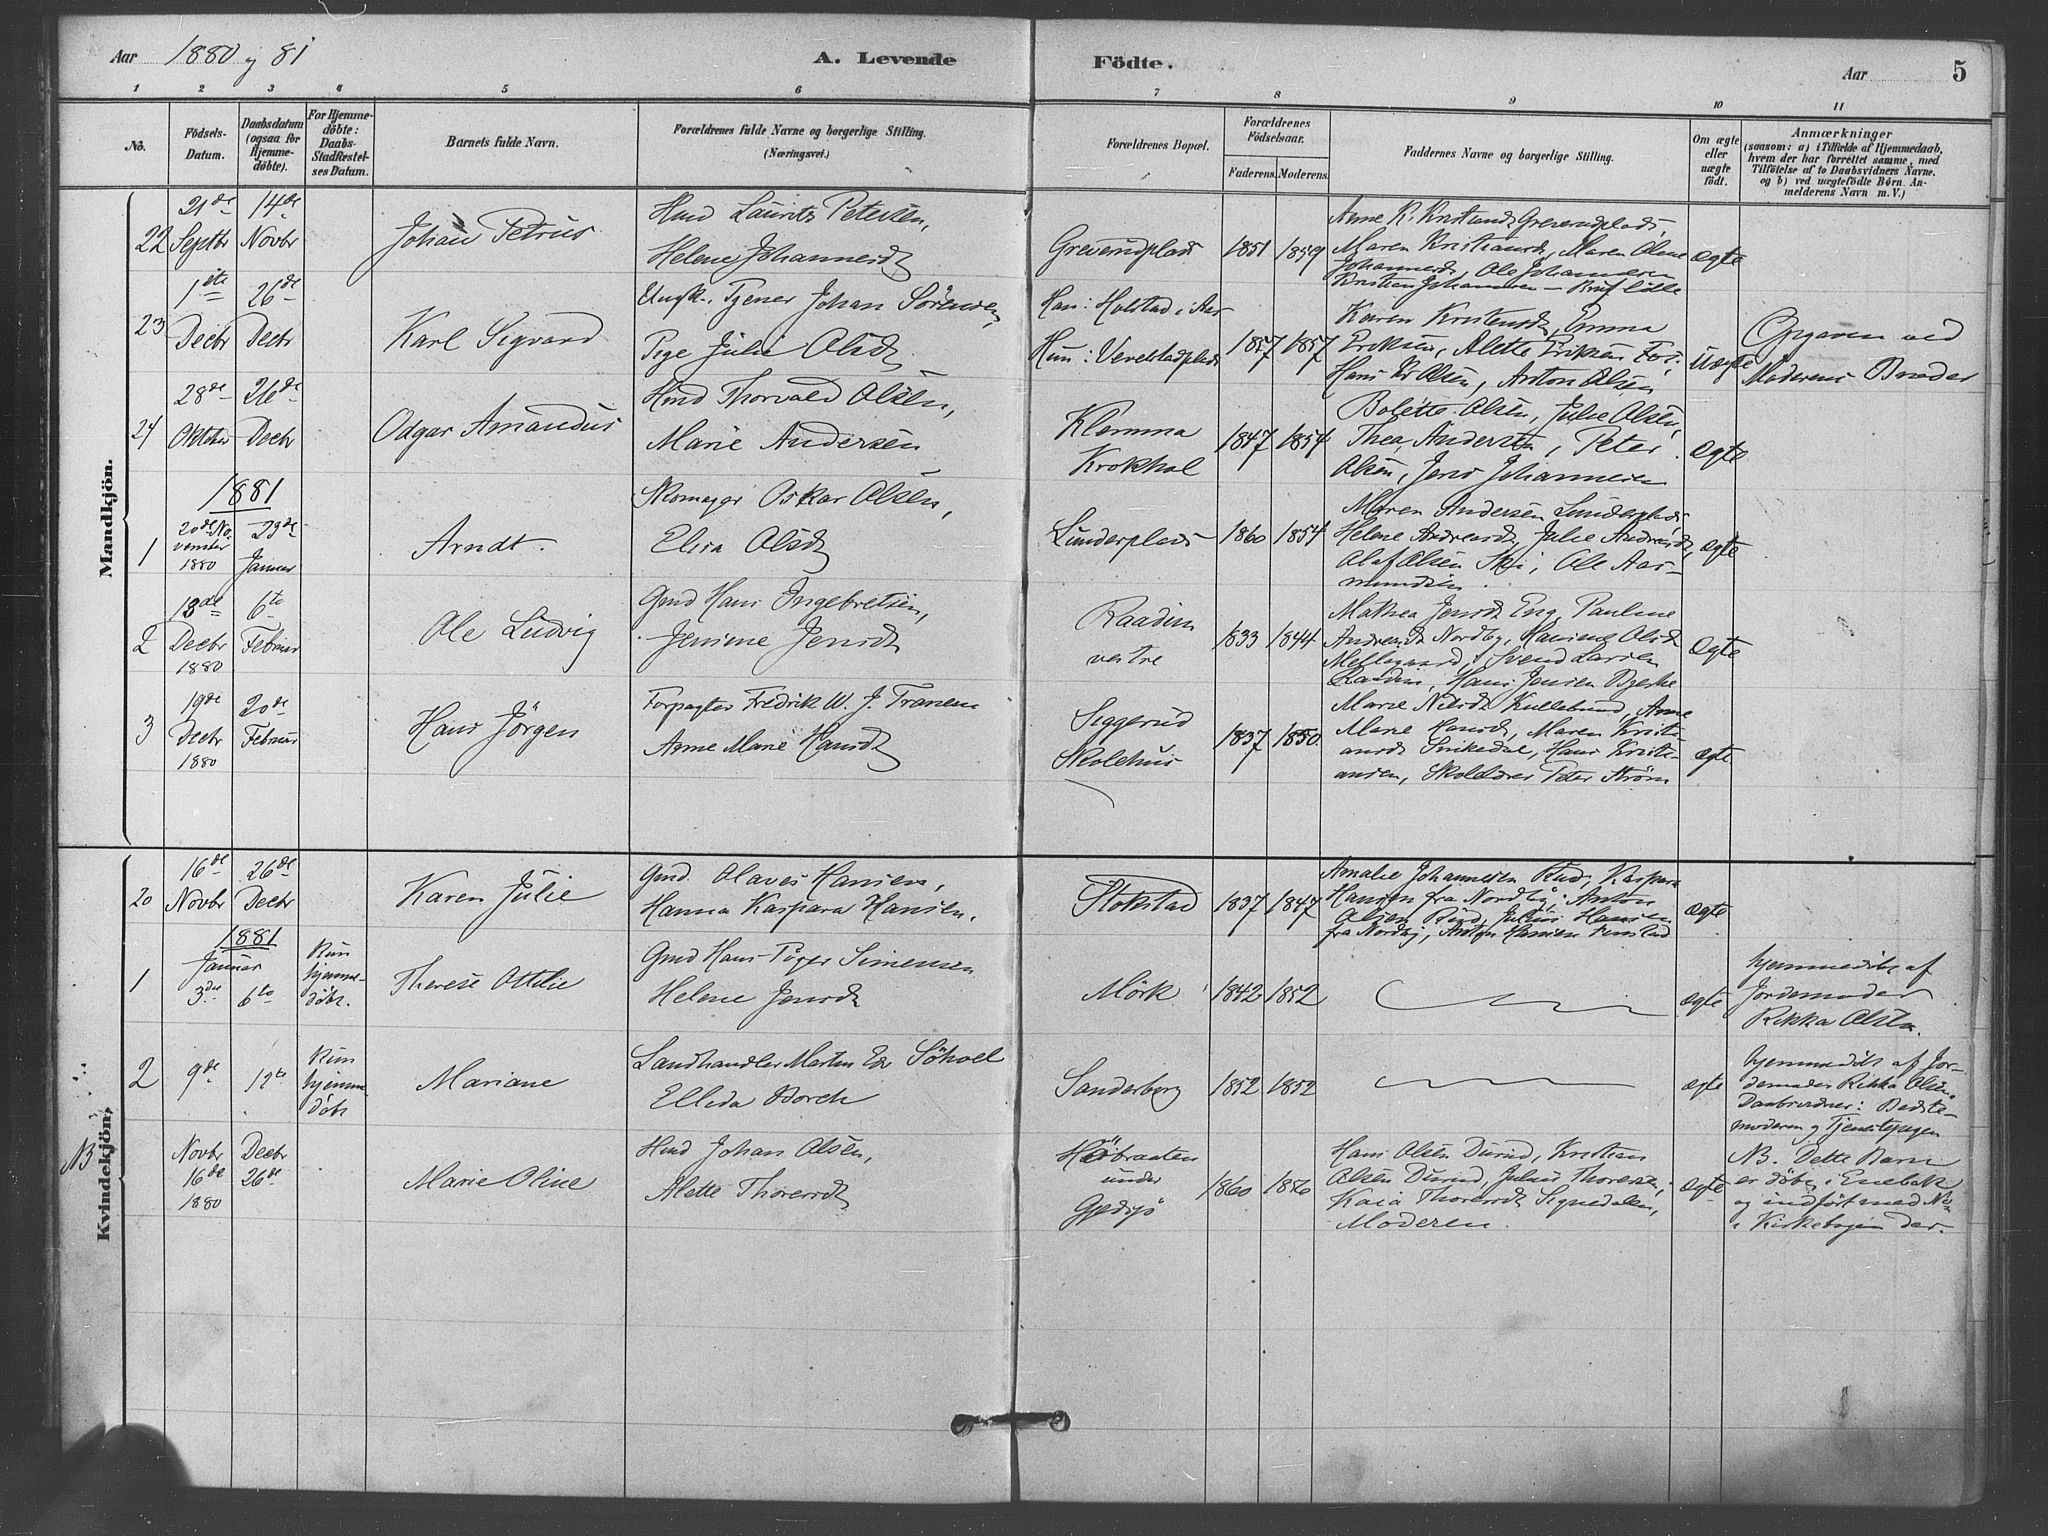 Aar 1880 og 81
A. Levende
Födte.
Aar
5
1
2
3
4
5
6
7
8
9
10
11
No.
Födsels-
Datum.
Daabsdatum
(ogsaa for
Hjemme-
döbte).
For Hjemme-
döbte:
Daabs-
Stadfæstel-
ses Datum.
Barnets fulde Navn.
Forældrenes fulde Navne og borgerlige Stilling.
(Næringsvei.)
Forældrenes Bopæl.
Forældrenes
Födselsaar.
Faderens.
Moderens.
Faddernes Navne og borgerlige Stilling.
Om ægte
eller
uægte
födt.
Anmærkninger
(saasom: a) i Tilfælde af Hjemmedaab,
hvem der har forrettet samme, med
Tilföielse af to Daabsvidners Navne.
og b) ved uægtefödte Börn An-
melderens Navn m. V.)
Mandkjön.
22
21de
Septbr
14de
Novbr
Johan Petrus
Hmd Laurits Petersen,
Helene Johannesdt
Greverudplads
1851
1859
Anne K. Kristiansdt Greverudplads,
Maren Kristiansdt, Maren Oline
Johannesdt, Ole Johannesen
Kristian Johannesen
ægte
23
1ste
Decbr
26de
Decbr
Karl Sigvard
Ungk. Tjener Johan Sörensen,
Pige Julie Olsdt
Han: Holstad i Aas
Hun: Vevelstadplads
1857
1857
Karen Kristensdt, Emma
Eriksen, Alette Eriksen
Hans Kr Olsen, Anton Olsen
Uægte
Opgaven ved
Moderens Broder
24
28de
Oktober
26de
Decbr
Odgar Amandus
Hmd Thorvald Olsen,
Marie Andersen
Klemma
Krokhol
1847
1854
Bolette Olsen, Julie Olsen,
Thea Andersen, Peter
Olsen, Jens Johannesen
ægte
1881
1
20de No-
vember
1880
23de
Januar
Arndt.
Skomager Oskar Olsen,
Elisa Olsdt
Lunderplads
1860
1854
Maren Andersen Lunderplads,
Helene Andreasdt, Julie Andreasdt,
Olaf Olsen Ski, Ole Aas-
mundsen.
ægte
2
18de
Decbr
1880
6te
Februar
Ole Ludvig
Gmd Hans Ingebretsen,
Jensine Jensdt
Raaden
vestre
1833
1844
Mathea Jensdt Eng, Pauline
Andreasdt Nordby, Hansine Olsdt
Mellegaard, Svend Larsen
Raaden, Hans Jensen
Ægte
3
19de
Decbr
1880
20de
Februar
Hans Jörgen
Forpagter Fredrik W. J. Tranem
Anne Marie Hansdt
Siggerud
Skolehus
1837
1850
Marie Nilsdt Kullebund, Anne
Marie Hansdt, Maren Kristi-
ansdt, Hans Kristi-
ansen, Skolelærer Peter Ström
ægte
Kvindekjön.
20
16de
Novbr
26de
Decbr
Karen Julie
Gmd. Olaves Hansen,
Hanna Kaspara Hansen.
Stokstad
1837
1847
Amalie Johannesen Rud, Kaspara
Hansen fra Nordby, Anton
Olsen Rud, Julius Hansen
fra Nordby, Anton Hansen Finstad
ægte
1881
1
Januar
3die
6te
Kun
hjemme-
döbt.
Therese Ottilie
Gmd Hans Piger Simensen
Helene Jensdt
Mörk
1842
1852
ægte
hjemmedöbt af
Jordemoder
Rikka Olsen.
2
9de
12te
Kun
hjemme
döbt
Mariane
Landhandler Martin Edv Söhoel
Ellida Borch
Sanderborg
1852
1852
ægte
hjemmedöbt af Jor-
demoder Rikka Olsen.
Daabsvidner: Bedste-
moderen og Tjenestepigen
NB
Novbr
16de
1880
Decbr
26de
Marie Oline
Hmd Johan Olsen,
Alette Thoresdt
Höibraaten
under
Gjedsjö
1860
1856
Hans Olsen Durud, Kristian
Olsen Durud, Julius Thoresen,
Kaia Thoresdt Signedalen,
Moderen.
ægte
NB. Dette Barn
er döbt i Enebak
og indfört med No
i Kirkebogen der.